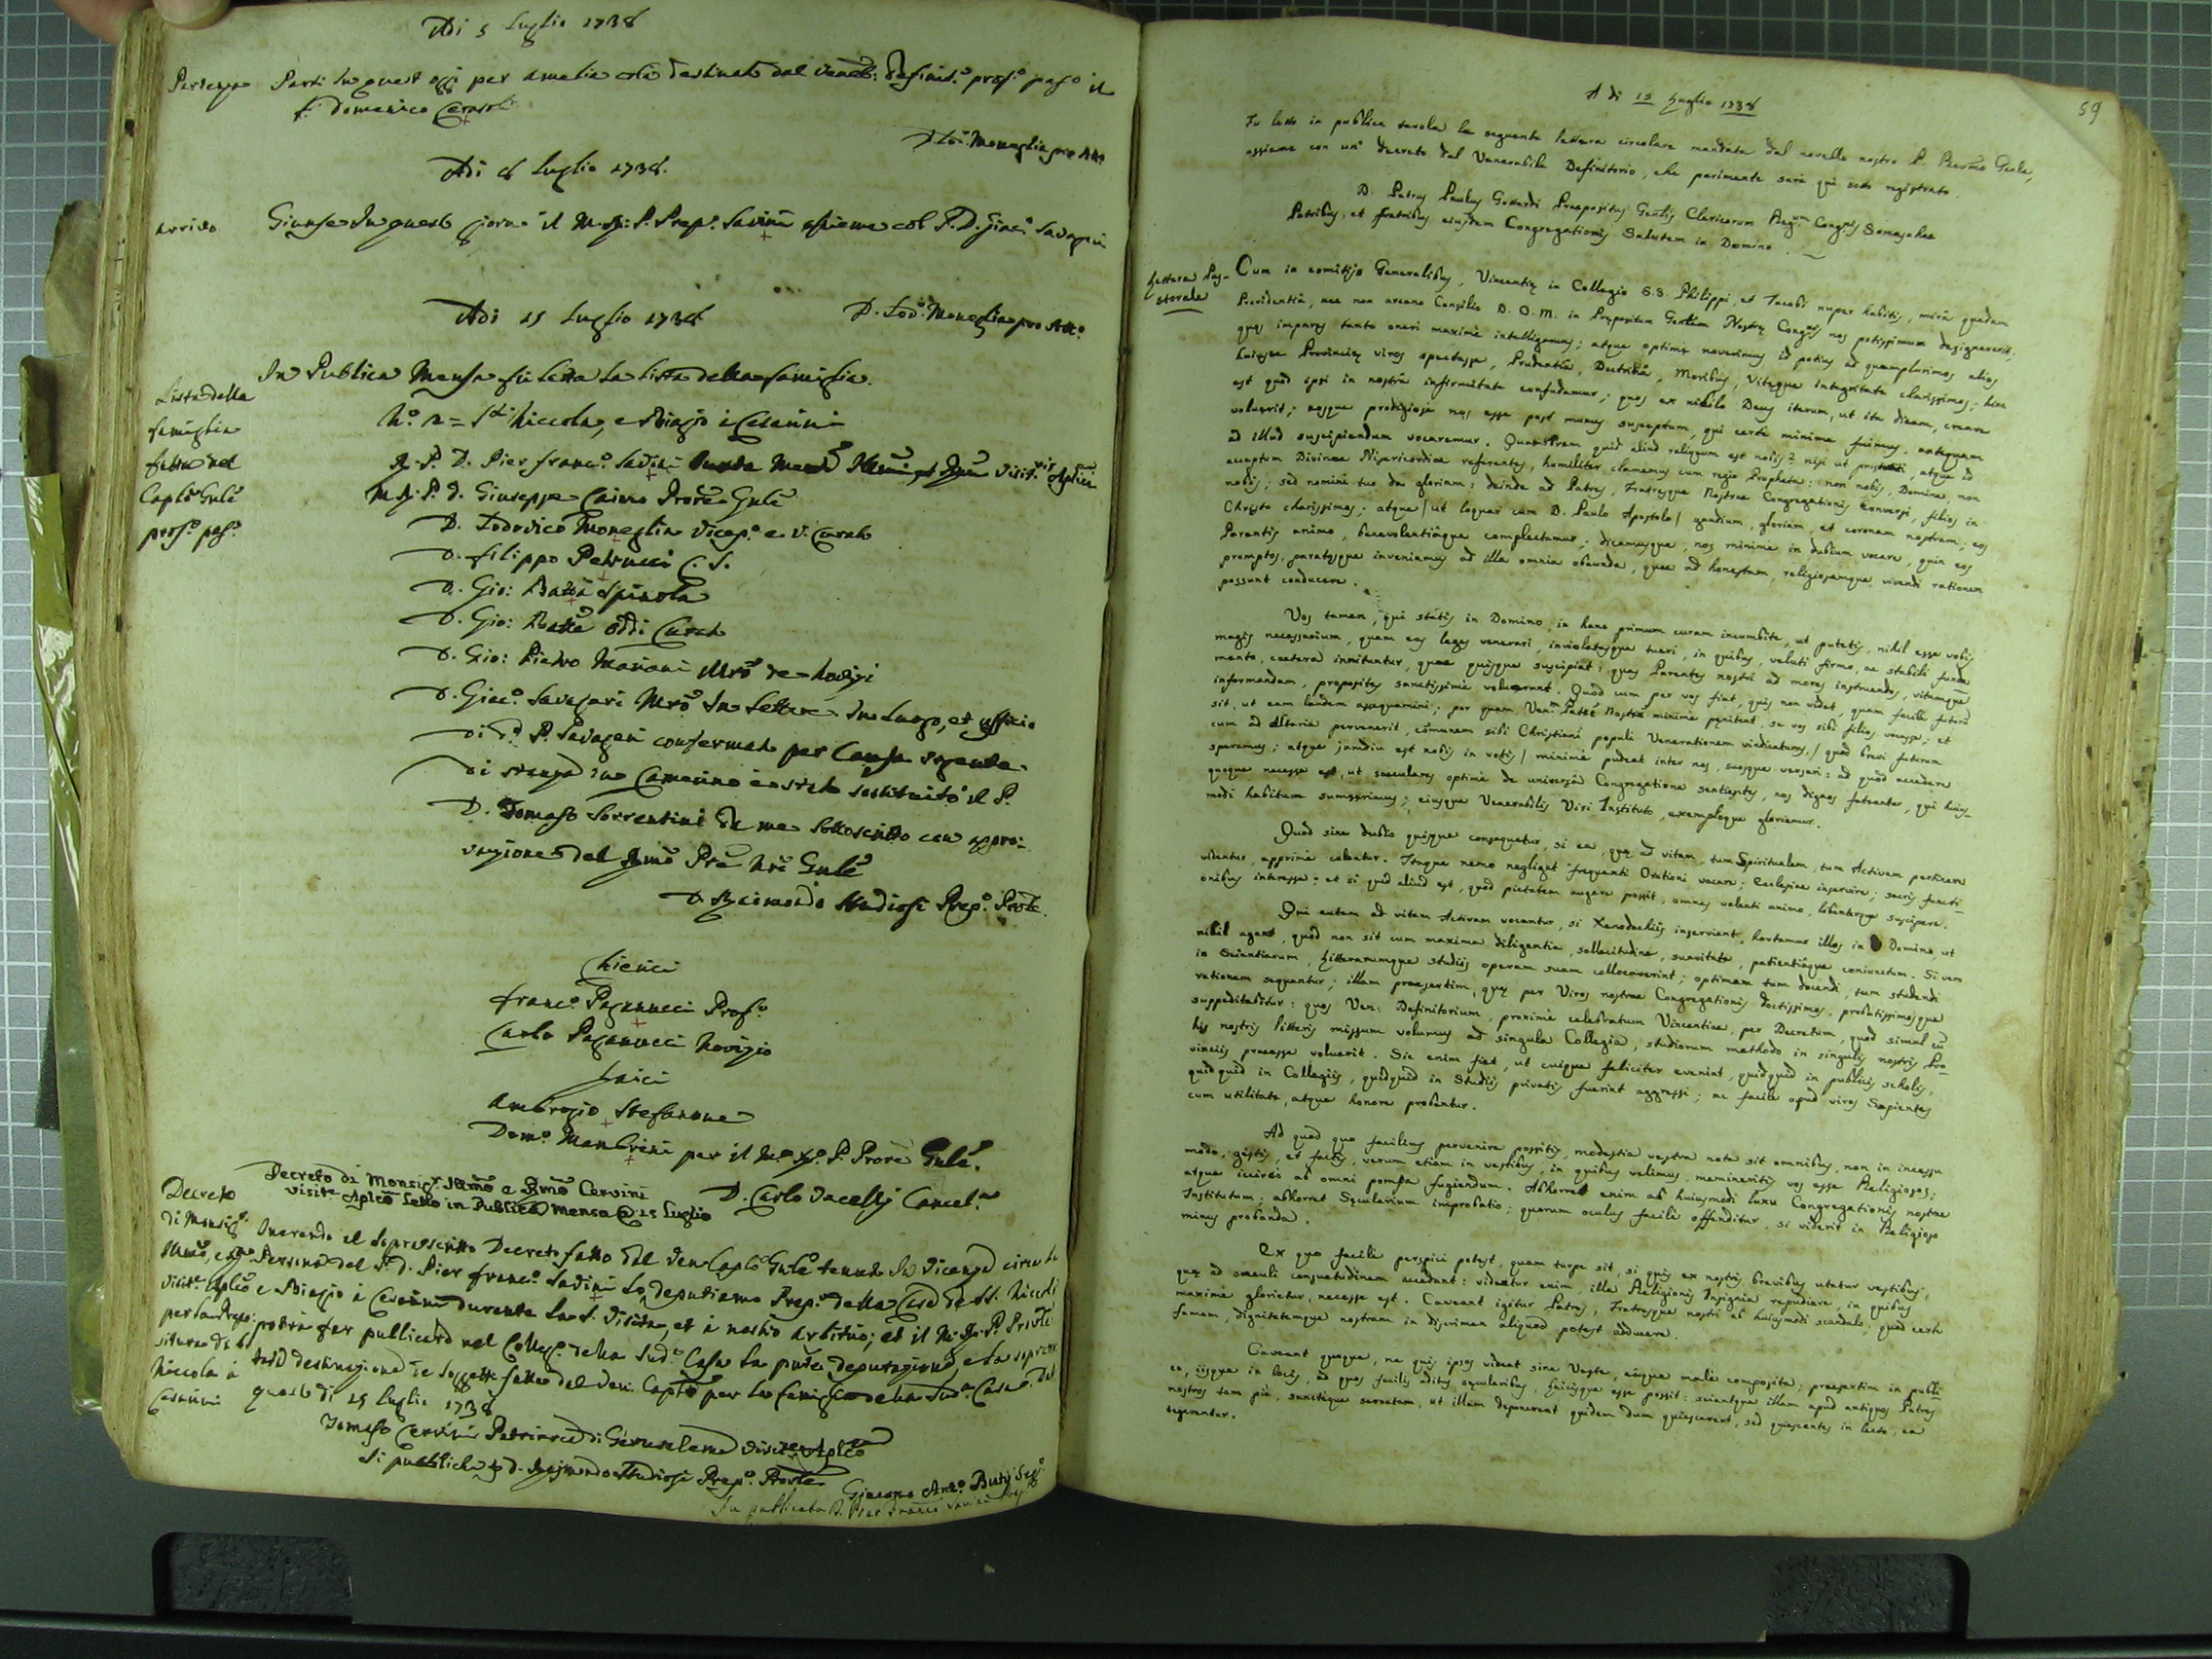 Adi 5 Luglio 1738
Partenza
Parti in quest oggi per Amelia colà destinato dal Vener: Definit.o pros.o pas.o il
F. Domenico Cerasoli
D. Lod. Moneglia pro Att.o
Adi 8 Luglio 1738.
Arrivo
Giunse in questo giorno il M. R. P. Prep.o Savini assieme col P. D. Giac.o Savageri
D. Lod.o Moneglia pro Att.o
Adi 15 Luglio 1738
In Publica Mensa fù letta la lista della famiglia.
Lista della
famiglia
fatta nel
Caplo Gnle
pros.o pas.o
N.o 2 = SS.ti Niccola, e Biagio i Cesarini
R. P. D. Pier Franc.o Savini
M. R. P. D. Giuseppe Caimo Prore Gnle
D. Lodovico Moneglia Vicep.o e V. Curato
D. Filippo Petrucci C. S.
D. Gio: Batta Spinola
D. Gio: Batta Oddi Curato
D. Gio: Pietro Mariani Mro de Novizi
D. Giac.o Savageri Mro in Lettere in luogo, et officio
di d.o P. Savageri confermato per causa urgente
di stanza in Camerino è stato sostituito il P.
D. Tomaso Sorrentini da me sottoscritto con appro:
vazione del Rmo Pre Nro Gnle
D. Raimondo Studiosi Prep.o Prole.
Chierici
Franc.o Paganucci Prof.o
Carlo Paganucci Novizio
Laici
Ambrogio Stefanone
Dom.o Manbrini per il M.o R.o P. Prore Gnle.
D. Carlo Vacelli Cancel.re
Decreto di Monsig.r Illmo e Rmo Cervini
Visit.e Aplco Letto in Publica Mensa @ 15 Luglio
Decreto
di Monsig.r
Illmo, e Rmo
Visit.e Aplco
per la Prepo:
situra di SS
Niccola i
Cesarini
Inerendo al soprascritto Decreto fatto dal Ven Caplo Gnle tenuto in Vicenza circa la
Persona del P. D. Pier Franc.o Savini lo deputiamo Prep.o della Casa de SS. Niccola
e Biagio i Cesarini durante la S. Visita, et à nostro arbitrio; et il M. R. P. Prole
potrà far publicare nel Colleg.o della sud.a Casa la pnte deputazione, e la sopra
destinazione de soggetti fatta dal Ven. Caplo per la famiglia della sud.a Casa
questo di 15 Luglio 1738
Tomaso Cervini Patriarca di Gerusalemme Visit.e Aplco
Si publichi D. Raimondo Studiosi Prep.o Prole
Giacomo Ant.o Butij Seg.o
Fu publicato D. Pier Franc.o Savini Prep.o
59
A di 15 Luglio 1738
Fu letto in publica tavola la seguente lettera circolare mandata dal novello nostro P. Reverm̃o Gnle,
assieme con un decreto del Venerabile Definitorio, che parimente sarà quì sotto registrato.
D. Petrus Paulus Gottardi Praepositus Gnlis Clericorum Reg.um Congnis Somaschae
Patribus, et Fratribus eiusdem Congregationis Salutem in Domino.
Lettera Pas-
storale
Cum in comitijs Generalibus, Vincentiȩ in Collegio S.S. Philippi, et Jacobi nuper habitis, mirâ quadam
Providentiâ, nec non arcano Consilio D. O. M. in Prȩpositum Gnlem Nostrȩ Congnis nos potissimum designaverit;
quos impares tanto oneri maximè intelligimus; atque optimè noverimus id potius ad quamplurimos alios
huiusce Provinciȩ viros spectasse, Prudentiâ, Doctrinâ, Moribus, Vitaque integritate clarissimos; hinc
est quòd ipsi in nostrâ infirmitate confundamur; quos ex nihilo Deus iterum, ut ita dicam, creare
voluerit; eosque prodigiosè nos esse post munus susceptum, qui certè minimè fuimus, antequam
ad illud suscipiendum vocaremur. Quamobrem quid aliud reliquum est nobis? nisi ut prostrati, atque id
acceptum Divinae Misericordiae referentes, humiliter clamemus cum regio Propheta: non nobis, Domine, non
nobis; sed nomini tuo da gloriam: deinde ad Patres, Fratresque Nostrae Congregationis conversi, filios in
Christo clarissimos; atque / ut loquar cum D. Paulo Apostolo / gaudium, gloriam, et coronam nostram; eos
Parentis animo, benevolentiâque complectamur; dicamusque, nos minimè in dubium vocare, quin eos
promptos, paratosque inveniamus ad illa omnia obeunda, quae ad honestam, religiosamque vivendi rationem
possunt conducere.
Vos tamen, qui statis in Domino, in hanc primum curam incumbite, ut putetis, nihil esse vobis
magis necessarium, quam eas leges venerari, inviolatasque tueri, in quibus, veluti firmo, ac stabili funda
mento, caetera innituntur, quae quisque suscipiat: quas Parentes nostri ad mores instruendos, vitamque
informandam, propositas sanctissimè voluerunt. Quòd cum per vos fiat, quis non videt, quam facilè futurũ
sit, ut eam laudem assequamini; per quam Ven.m Patrẽ Nostrũ minimè pȩniteat, se vos sibi filios; et
cum ad Altaria pervenerit, cõmunem sibi Christiani populi Venerationem vindicaturus, / quod brevi futurum
speramus; atque jamdiu est nobis in votis / minimè pudeat inter nos, suosque versari: ad quòd accedere
quoque necesse est, ut saeculares optimè de universâ Congregatione sentientes, nos dignos fateantur, qui huius-
modi habitum sumpserimus; eiusque Venerabilis Viri Instituto, exemploque gloriemur.
Quòd sine dubio quisque consequetur, si ea, quȩ ad vitam, tum Spiritualem, tum Activam pertinere
videntur, apprimè colantur. Itaque nemo negligat frequenti Orationi vacare; Ecclesiae inservire; sacris functi-
onibus interesse; et si quid aliud est, quòd pietatem augere possit, omnes volenti animo, libenterque suscipere.
Qui autem ad vitam Activam vocantur, si Xenodochiis inserviunt, hortamur illos in Domino, ut
nihil agant, quòd non sit cum maxima diligentia, sollicitudine, suavitate, patientiâque coniunctum. Si vero
in Scientiarum, Litterarumque studiis operam suam collocaverint; optimam tum docendi, tum studendi
rationem sequantur; illam praesertim, quȩ per Viros nostrae Congregationis doctissimos, probatissimosque
suppeditabitur: quos Ven: Definitorium, proximè celebratum Vincentiae, per Decretum, quod simul cũ
his nostris litteris missum volumus ad singula Collegia, studiorum methodo in singulis nostris Pro-
vinciis praeesse voluerit. Sic enim fiet, ut cuique feliciter eveniat, quidquid in publicis scholis,
quidquid in Collegiis, quidquid in Studiis privatis fuerint aggressi; ac facilè apud viros Sapientes
cum utilitate, atque honore probentur.
Ad quod quo facilius pervenire possitis, modestia vestra nota sit omnibus, non in incessu
modo, gestis, et factis, verum etiam in vestibus, in quibus velimus, memineritis vos esse Religiosos;
atque iccircò ab omni pompa fugiendum. Abhorret enim ab huiusmodi luxu Congregationis nostrae
Institutum; abhorret Sȩcularium improbatio; quorum oculus facilè offenditur, si viderit in Religioso
minus probanda.
Ex quo facilè perspici potest, quam turpe sit, si quis ex nostris brevibus utatur vestibus,
quȩ ad saeculi consuetudinem accedant: videtur enim, illa Religionis Insignia repudiare, in quibus
maximè glorietur, necesse est. Caveant igitur Patres, Fratresque nostri ab huiusmodi scandalo; quod certè
famam, dignitatemque nostram in discrimen aliquod potest adducere.
Caveant quoque, ne quis ipsos videat sine Veste, eâque malè composita; praesertim in publi-
co, iisque in locis, ad quos facilis aditus sȩcularibus, huiusque esse possit: sciantque illam apud antiquos Patres
nostros tam piè, sanctèque servatam, ut illam deponerent quidem dum quiescerent, sed quiescentes in lecto, ea
tegerentur.